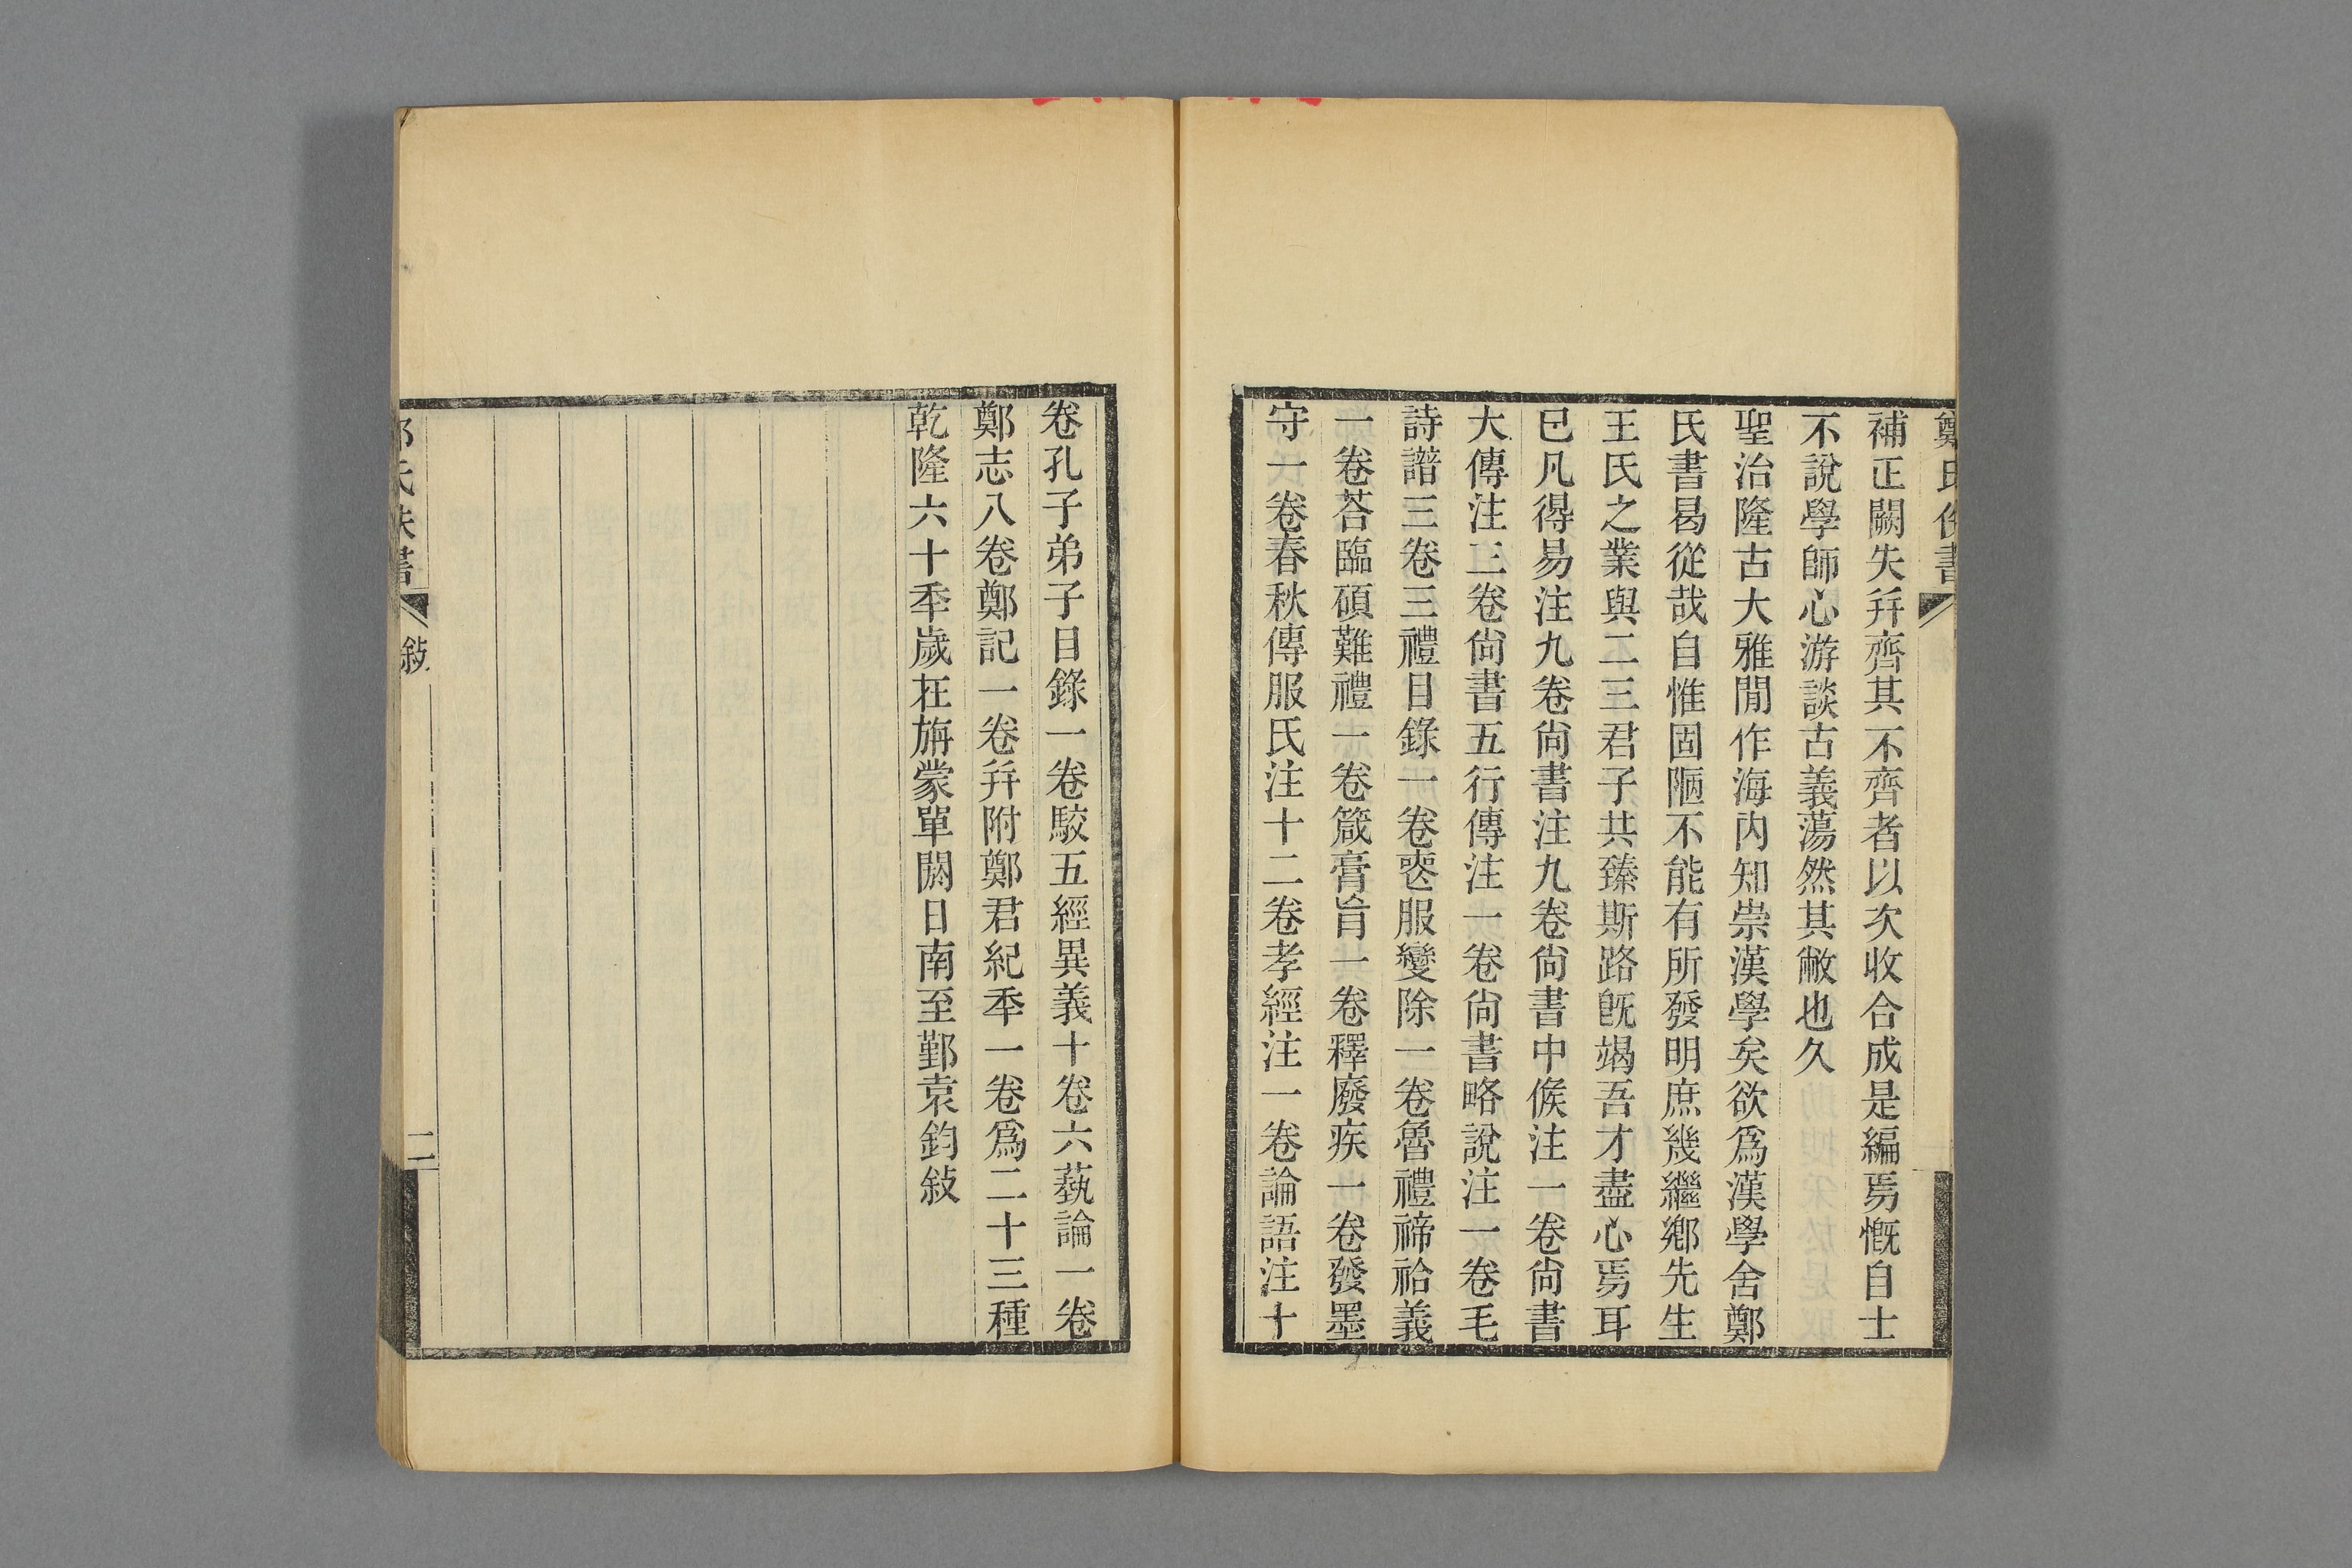 鄭氏佚書
補正闕失幷齊其不齊者以次收合成是編焉慨自士
不說學師心游談古義蕩然其敝也久
聖治隆古大雅閒作海内知崇漢學矣欲爲漢學舍鄭
氏書曷從哉自惟固陋不能有所發明庶幾繼鄉先生
王氏之業與二三君子共臻斯路旣竭吾才盡心焉耳
已凡得易注九卷尙書注九卷尙書中候注一卷尙書
大傳注三卷尙書五行傳注一卷尙書略說注一卷毛
詩譜三卷三禮目錄一卷喪服變除一卷魯禮禘祫義
一卷荅臨碩難禮一卷箴膏肓一卷釋廢疾一卷發墨
守一卷春秋傳服氏注十二卷孝經注一卷論語注十
卷孔子弟子目錄一卷駮五經異義十卷六蓺論一卷
鄭志八卷鄭記一卷幷附鄭君紀秊一卷爲二十三種
乾隆六十秊歲在旃蒙單閼日南至鄞袁鈞敍
鄭氏佚書
敍
二